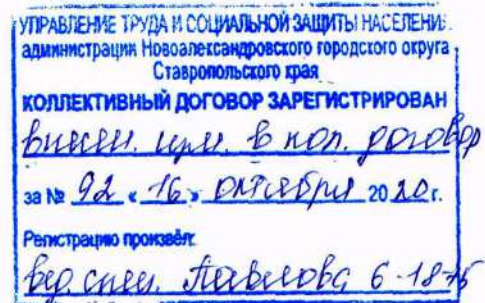 УПРАВЛЕНИЕ ТРУДА И СОЦИАЛЬНОЙ ЗАЩИТЫ НАСЕЛЕНИЯ
администрации Новоалександровского городского округа
Ставропольского края
КОЛЛЕКТИВНЫЙ ДОГОВОР ЗАРЕГИСТРИРОВАН
внесен. изм. в кол. договор
за № 92 « 16 » октября 20 20 г.
Регистрацию произвёл:
вед. спец. Павлова 6-18-45